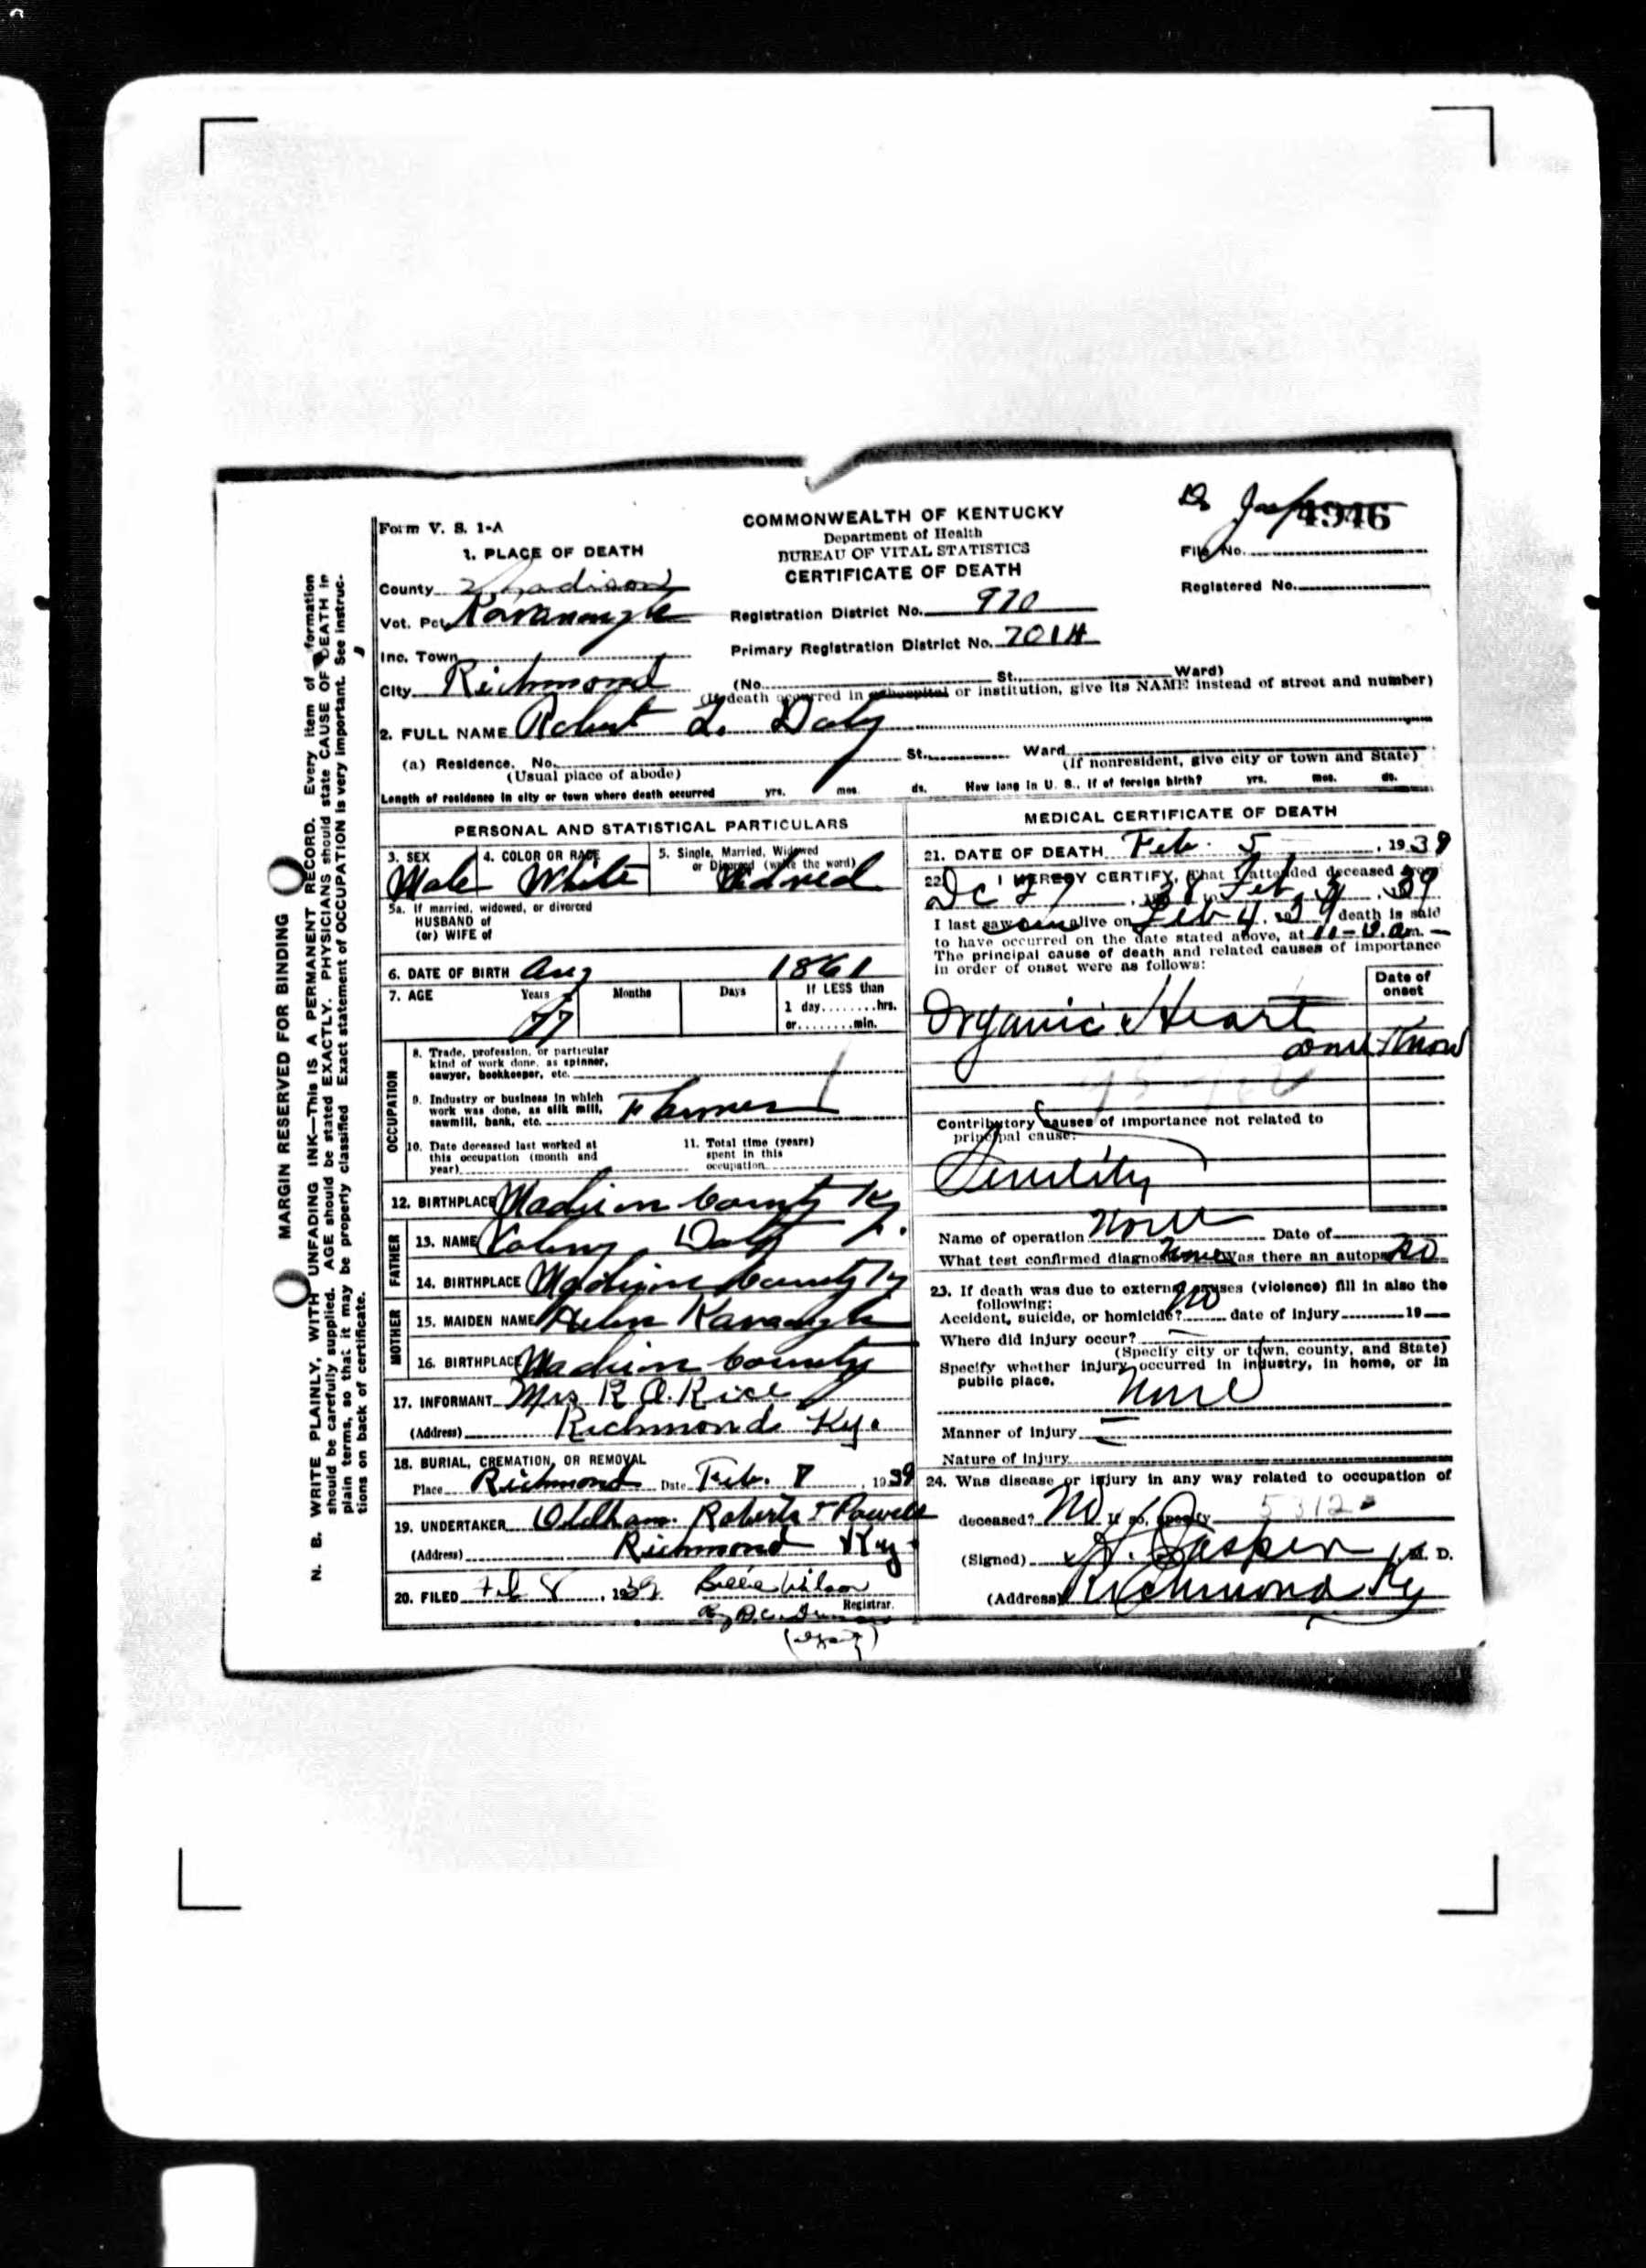 4946
Form V. S. 1-A
COMMONWEALTH OF KENTUCKY
Department of Health
BUREAU OF VITAL STATISTICS
CERTIFICATE OF DEATH
File No.
Registered No.
1. PLACE OF DEATH
County Madison
Vot. Pct. Kavanaugh
Registration District No. 970
Inc. Town
Primary Registration District No. 7014
City Richmond
(No. St., Ward)
(If death occurred in a hospital or institution, give its NAME instead of street and number)
2. FULL NAME Robert L. Doty
(a) Residence. No. St. Ward
(Usual place of abode)
(If nonresident, give city or town and State)
Length of residence in city or town where death occurred yrs. mos. ds. How long in U. S., if of foreign birth? yrs. mos. ds.
PERSONAL AND STATISTICAL PARTICULARS
3. SEX
Male
4. COLOR OR RACE
White
5. Single, Married, Widowed
or Divorced (write the word)
5a. If married, widowed, or divorced
HUSBAND of
(or) WIFE of
6. DATE OF BIRTH Aug 1861
7. AGE Years Months Days If LESS than
1 day........hrs.
or........min.
77
OCCUPATION
8. Trade, profession, or particular
kind of work done, as spinner,
sawyer, bookkeeper, etc.
9. Industry or business in which
work was done, as silk mill,
sawmill, bank, etc. Farmer
10. Date deceased last worked at
this occupation (month and
year)
11. Total time (years)
spent in this
occupation
12. BIRTHPLACE Madison County Ky
FATHER
13. NAME Doty
14. BIRTHPLACE Madison County Ky
MOTHER
15. MAIDEN NAME Helen Kavanaugh
16. BIRTHPLACE Madison County
17. INFORMANT Mrs R. O. Rice
(Address) Richmond Ky.
18. BURIAL, CREMATION, OR REMOVAL
Place Richmond Date Feb. 7, 1939
19. UNDERTAKER Oldham Roberts & Powell
(Address) Richmond Ky.
20. FILED Feb 8, 1939 Billie Wilson
Registrar.
By D.C.
MEDICAL CERTIFICATE OF DEATH
21. DATE OF DEATH Feb. 5, 1939
22. I HEREBY CERTIFY, That I attended deceased from
Dc 27, 38 to Feb 4, 39
I last saw alive on Feb 4, 39 death is said
to have occurred on the date stated above, at m.
The principal cause of death and related causes of importance
in order of onset were as follows:
Date of
onset
Organic Heart
dont Know
Contributory causes of importance not related to
principal cause:
Senility
Name of operation None Date of
What test confirmed diagnosis? None Was there an autopsy? No
23. If death was due to external causes (violence) fill in also the
following:
Accident, suicide, or homicide? No date of injury 19
Where did injury occur?
(Specify city or town, county, and State)
Specify whether injury occurred in industry, in home, or in
public place.
None
Manner of injury
Nature of injury
24. Was disease or injury in any way related to occupation of
deceased? No If so, specify
(Signed) Jasper, M. D.
(Address) Richmond Ky
MARGIN RESERVED FOR BINDING
N. B. WRITE PLAINLY, WITH UNFADING INK—This IS A PERMANENT RECORD. Every item of information
should be carefully supplied. AGE should be stated EXACTLY. PHYSICIANS should state CAUSE OF DEATH in
plain terms, so that it may be properly classified. Exact statement of OCCUPATION is very important. See instruc-
tions on back of certificate.